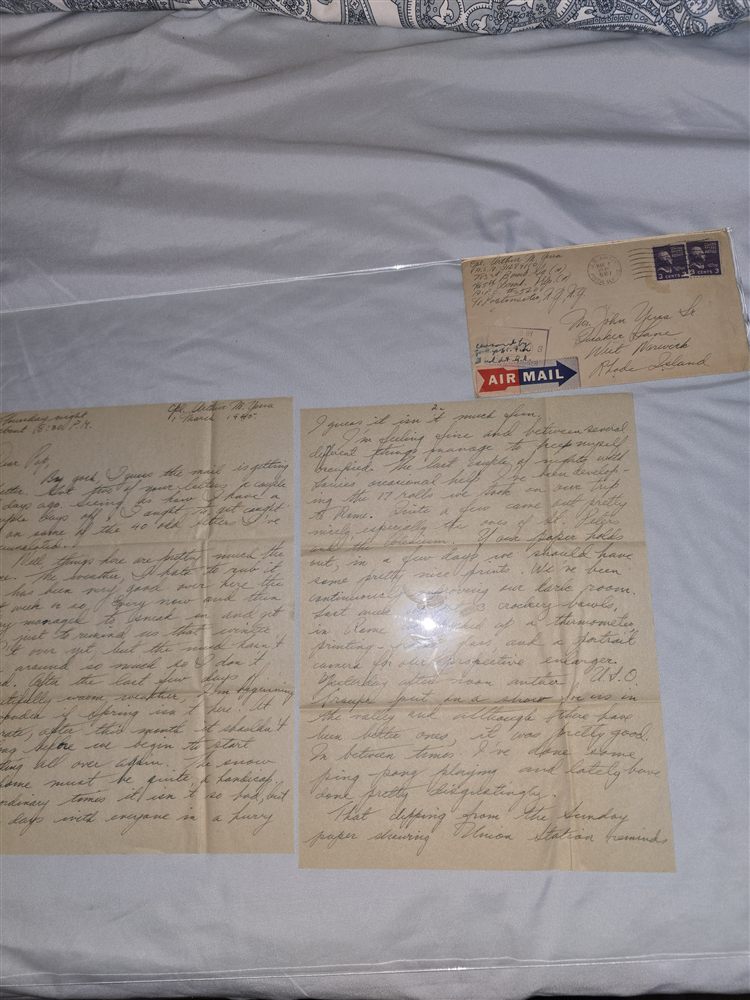 Cpl. Arthur M.
Postmaster, N.Y. N.Y.
3 CENTS 3 CENTS 3
Mr. John Sr
Quaker Lane
West Warwick
Rhode Island
Censored by
AIR MAIL
Thursday night
about P.M.
Cpl. Arthur M.
1 March 1945
Dear Pop,
By gosh, I guess the mail is getting
better. Got two of your letters a couple
days ago. Seeing as how I have a
couple days off, I ought to get caught
on some of the 40 old letters I've
accumulated.
Well things here are pretty much the
The weather, I hate to rub it
has been very good over here the
week or so. Every now and then
manages to sneak in and get
just to remind us that winter
over yet, but the mud hasn't
around so much so I don't
After the last few days
warm weather, I'm beginning
if Spring isn't here. At
rate, after this month it shouldn't
before we begin to start
all over again. The snow
home must be quite a handicap,
ordinary times it isn't so bad, but
days with everyone in a hurry
2.
I guess it isn't much fun.
I'm feeling fine and between several
different things manage to keep myself
occupied. The last couple of nights with
occasional help I've been develop-
ing the 17 rolls we took on our trip
to Rome. Quite a few came out pretty
nicely, especially the ones of St. Peters
and the Coloseum. If our paper holds
out, in a few days we should have
some pretty nice prints. We've been
continuously improving our dark room.
Last week 3 crockery bowls,
in Rome picked up a thermometer,
printing glass, and a portrait
camera for our prospective enlarger.
Yesterday afternoon another U.S.O.
Troupe put in a show for us in
the valley and although there have
been better ones, it was pretty good.
In between times I've done some
ping pong playing and lately have
done pretty disgustingly.
That clipping from the Sunday
paper showing Union Station reminds